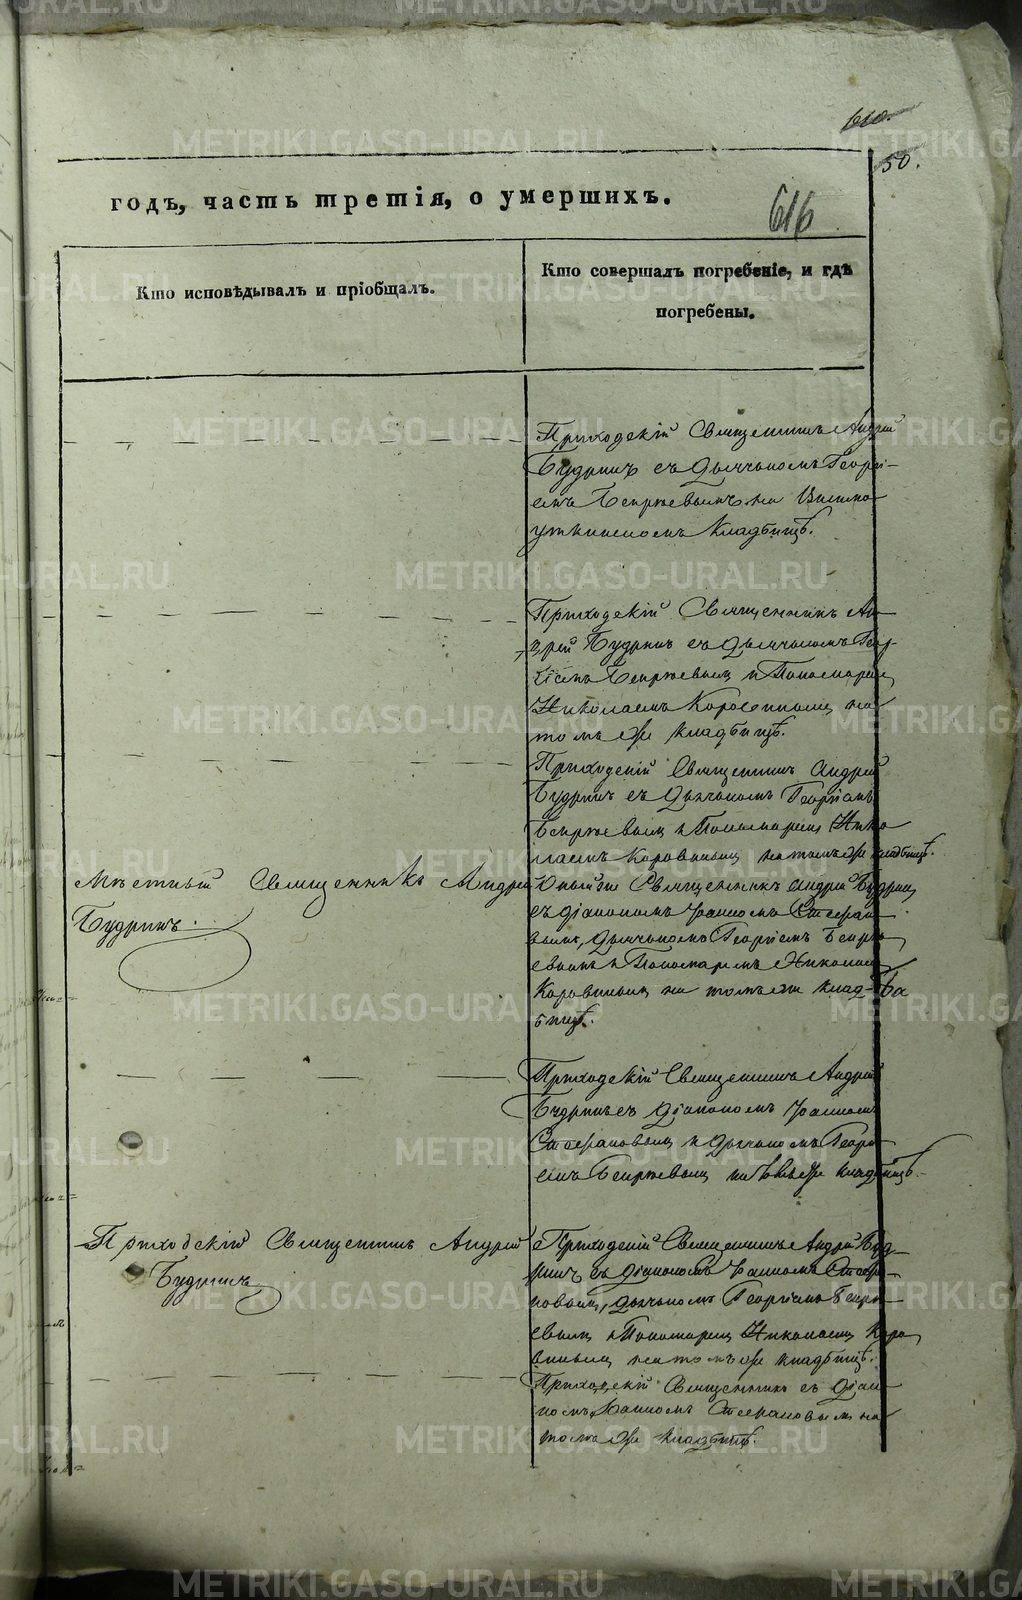 610.
50.
616
годъ, часть третія, о умершихъ.
Кто исповѣдывалъ и пріобщалъ.
Кто совершалъ погребеніе, и гдѣ
погребены.
Приходскій Священникъ Андрей
Будринъ съ Дьячкомъ Георгі-
емъ на
кладбищѣ.
Приходскій Священникъ Ан-
дрей Будринъ съ Дьячкомъ Геор-
гіемъ и Пономаремъ
Николаемъ на
томъ же кладбищѣ.
Приходскій Священникъ Андрей
Будринъ съ Дьячкомъ Георгіемъ
и Пономаремъ Нико
лаемъ Коровинымъ на томъ же кладбищѣ.
Мѣстный Священникъ Андрей
Будринъ.
Священникъ Андрей Будринъ
съ Діакономъ Іоанномъ Стефано
вымъ, Дьячкомъ Георгіемъ
и Пономаремъ Николаемъ
Коровинымъ на томъ же клад-
бищѣ.
Приходскій Священникъ Андрей
Будринъ съ Діакономъ Іоанномъ
Стефановымъ и Дьячкомъ Георгі
емъ кладбищѣ.
Приходскій Священникъ Андрей
Будринъ
Приходскій Священникъ Андрей Буд-
ринъ съ Діакономъ Іоанномъ Стефа-
новымъ, Дьячкомъ Георгіемъ
и Пономаремъ Николаемъ Коро
винымъ на томъ же кладбищѣ.
Приходскій Священникъ съ Діако
номъ Іоанномъ Стефановымъ на
томъ же кладбищѣ.
METRIKI.GASO-URAL.RU